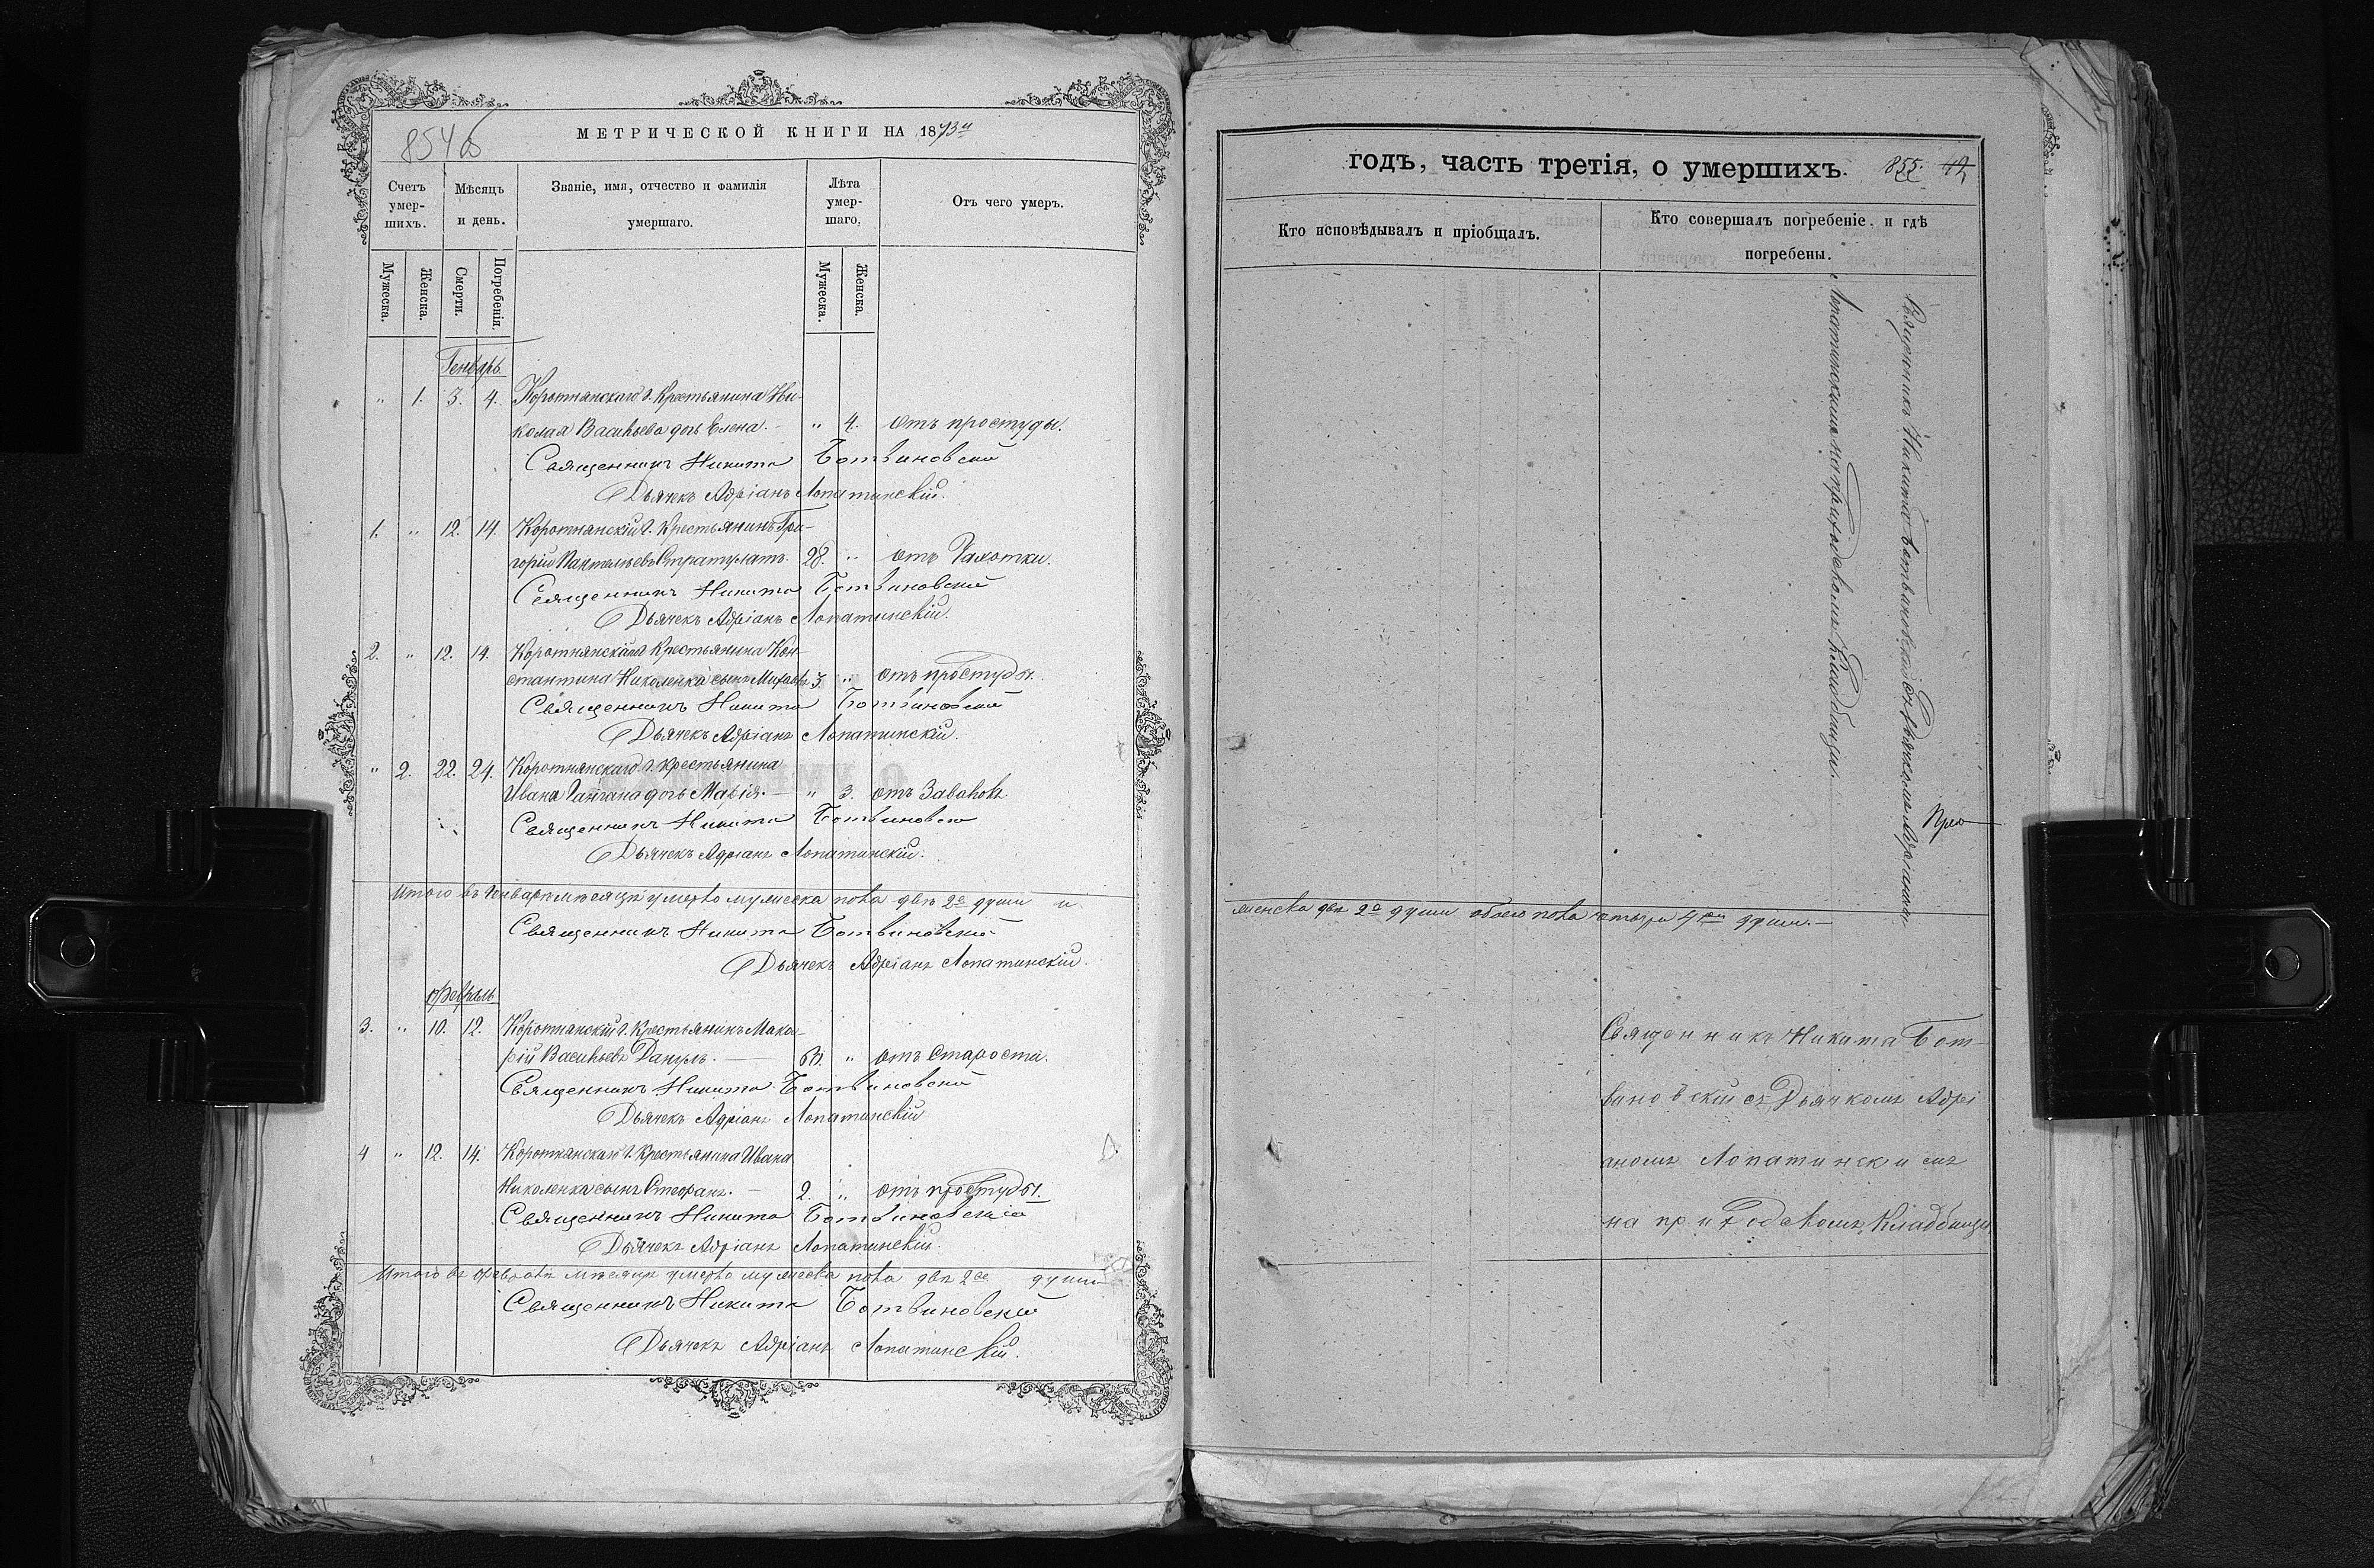 854об
МЕТРИЧЕСКОЙ КНИГИ НА 1873й
Счетъ умер-шихъ.
Мѣсяцъ и день.
Званіе, имя, отчество и фамилія умершаго.
Лѣта умер-шаго.
Отъ чего умеръ.
Мужеска.
Женска.
Смерти.
Погребенія.
Мужеска.
Женска.
Генварь
" 1. 3. 4. Коротнянскаго Крестьянина Ни-
колая Васильева дочь Елена. " 4. отъ простуды.
Священникъ Никита Ботвиновскій
Дьячекъ Адріанъ Лопатинскій.
1. " 12. 14. Коротнянскій Крестьянинъ Гри-
горій Пантелѣевъ Стратулатъ. 28. " отъ Чахотки.
Священникъ Никита Ботвиновскій
Дьячекъ Адріанъ Лопатинскій.
2. " 12. 14. Коротнянскаго Крестьянина Кон-
стантина Николенка сынъ Михаилъ 3 " отъ простуды.
Священникъ Никита Ботвиновскій
Дьячекъ Адріанъ Лопатинскій.
" 2. 22. 24. Коротнянскаго Крестьянина
Ивана дочь Марія. " 3. отъ Заваловъ
Священникъ Никита Ботвиновскій
Дьячекъ Адріанъ Лопатинскій.
Итого въ Генварѣ мѣсяцѣ умерло мужеска пола двѣ 2е души и
Священникъ Никита Ботвиновскій
Дьячекъ Адріанъ Лопатинскій.
Февраль
3. " 10. 12. Коротнянскій Крестьянинъ Мака-
рій Васильевъ " отъ Старости.
Священникъ Никита Ботвиновскій
Дьячекъ Адріанъ Лопатинскій
4 " 12. 14. Коротнянскаго Крестьянина Ивана
Николенка сынъ Стефанъ. 2. " отъ простуды.
Священникъ Никита Ботвиновскій
Дьячекъ Адріанъ Лопатинскій.
Итого въ Февралѣ мѣсяцѣ умерло мужеска пола двѣ 2е души
Священникъ Никита Ботвиновскій
Дьячекъ Адріанъ Лопатинскій.
годъ, часть третія, о умершихъ.
855. 42
Кто исповѣдывалъ и пріобщалъ.
Кто совершалъ погребеніе. и гдѣ погребены.
Священникъ Никита Ботвиновскій съ Дьячкомъ Адріаномъ
Лопатинскимъ на приходскомъ Кладбищи.
женска двѣ 2е души обоего пола четыре 4ре души.
Священникъ Никита Бот-
виновскій съ Дьячкомъ Адрі
аномъ Лопатинскимъ
на приходскомъ Кладбищи